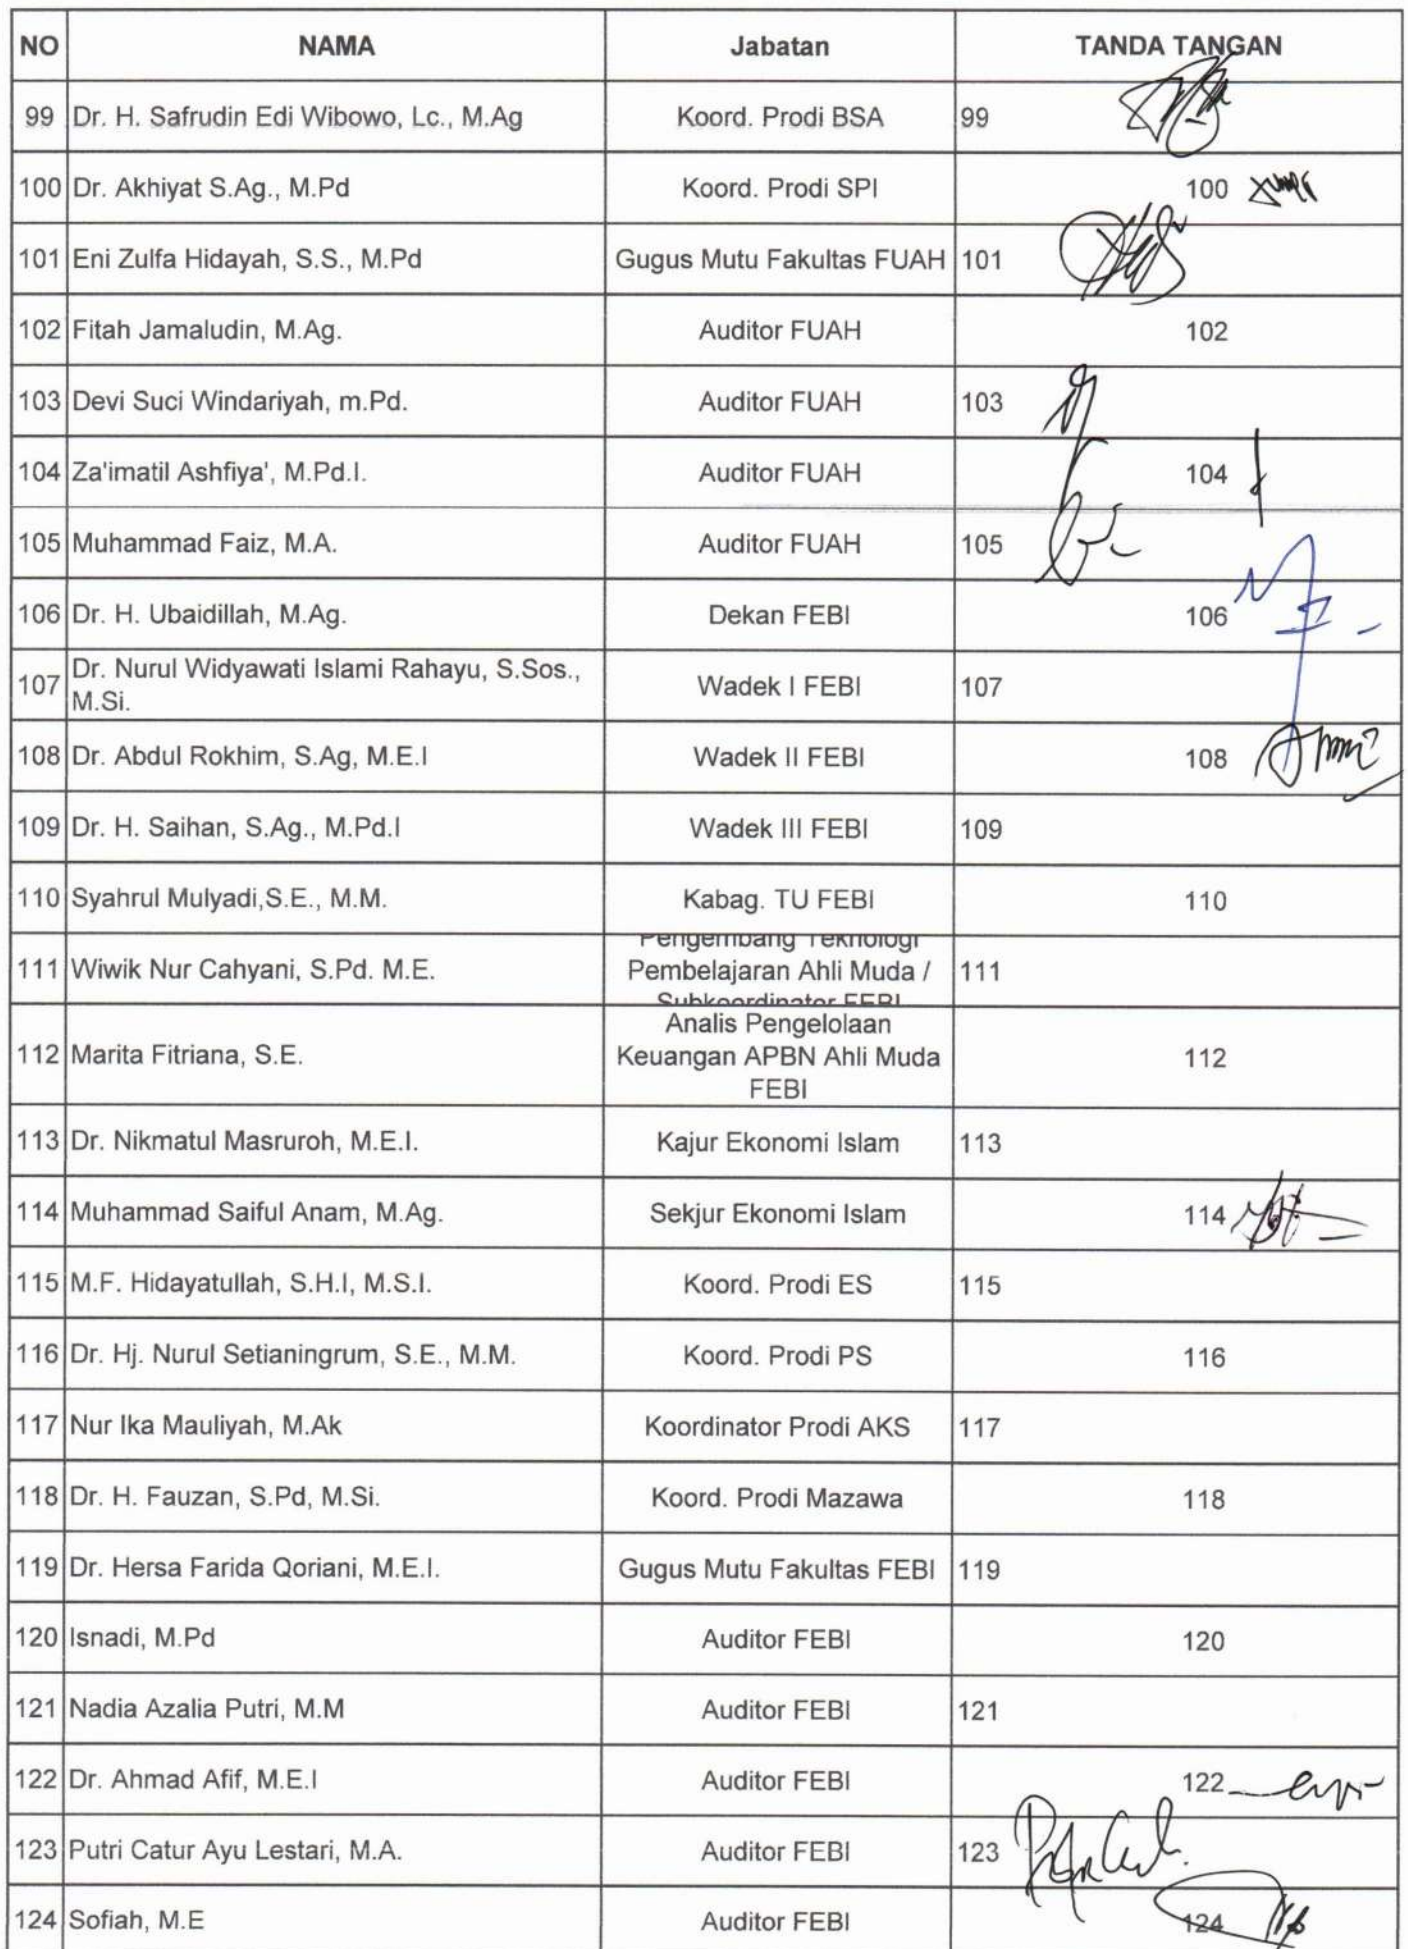 NO NAMA Jabatan TANDA TANGAN
99 Dr. H. Safrudin Edi Wibowo, Lc., M.Ag Koord. Prodi BSA 99
100 Dr. Akhiyat S.Ag., M.Pd Koord. Prodi SPI 100
101 Eni Zulfa Hidayah, S.S., M.Pd Gugus Mutu Fakultas FUAH 101
102 Fitah Jamaludin, M.Ag. Auditor FUAH 102
103 Devi Suci Windariyah, m.Pd. Auditor FUAH 103
104 Za'imatil Ashfiya', M.Pd.I. Auditor FUAH 104
105 Muhammad Faiz, M.A. Auditor FUAH 105
106 Dr. H. Ubaidillah, M.Ag. Dekan FEBI 106
107 Dr. Nurul Widyawati Islami Rahayu, S.Sos.,
M.Si. Wadek I FEBI 107
108 Dr. Abdul Rokhim, S.Ag, M.E.I Wadek II FEBI 108
109 Dr. H. Saihan, S.Ag., M.Pd.I Wadek III FEBI 109
110 Syahrul Mulyadi,S.E., M.M. Kabag. TU FEBI 110
111 Wiwik Nur Cahyani, S.Pd. M.E. Pengembang Teknologi
Pembelajaran Ahli Muda /
Subkoordinator FEBI 111
112 Marita Fitriana, S.E. Analis Pengelolaan
Keuangan APBN Ahli Muda
FEBI 112
113 Dr. Nikmatul Masruroh, M.E.I. Kajur Ekonomi Islam 113
114 Muhammad Saiful Anam, M.Ag. Sekjur Ekonomi Islam 114
115 M.F. Hidayatullah, S.H.I, M.S.I. Koord. Prodi ES 115
116 Dr. Hj. Nurul Setianingrum, S.E., M.M. Koord. Prodi PS 116
117 Nur Ika Mauliyah, M.Ak Koordinator Prodi AKS 117
118 Dr. H. Fauzan, S.Pd, M.Si. Koord. Prodi Mazawa 118
119 Dr. Hersa Farida Qoriani, M.E.I. Gugus Mutu Fakultas FEBI 119
120 Isnadi, M.Pd Auditor FEBI 120
121 Nadia Azalia Putri, M.M Auditor FEBI 121
122 Dr. Ahmad Afif, M.E.I Auditor FEBI 122
123 Putri Catur Ayu Lestari, M.A. Auditor FEBI 123
124 Sofiah, M.E Auditor FEBI 124